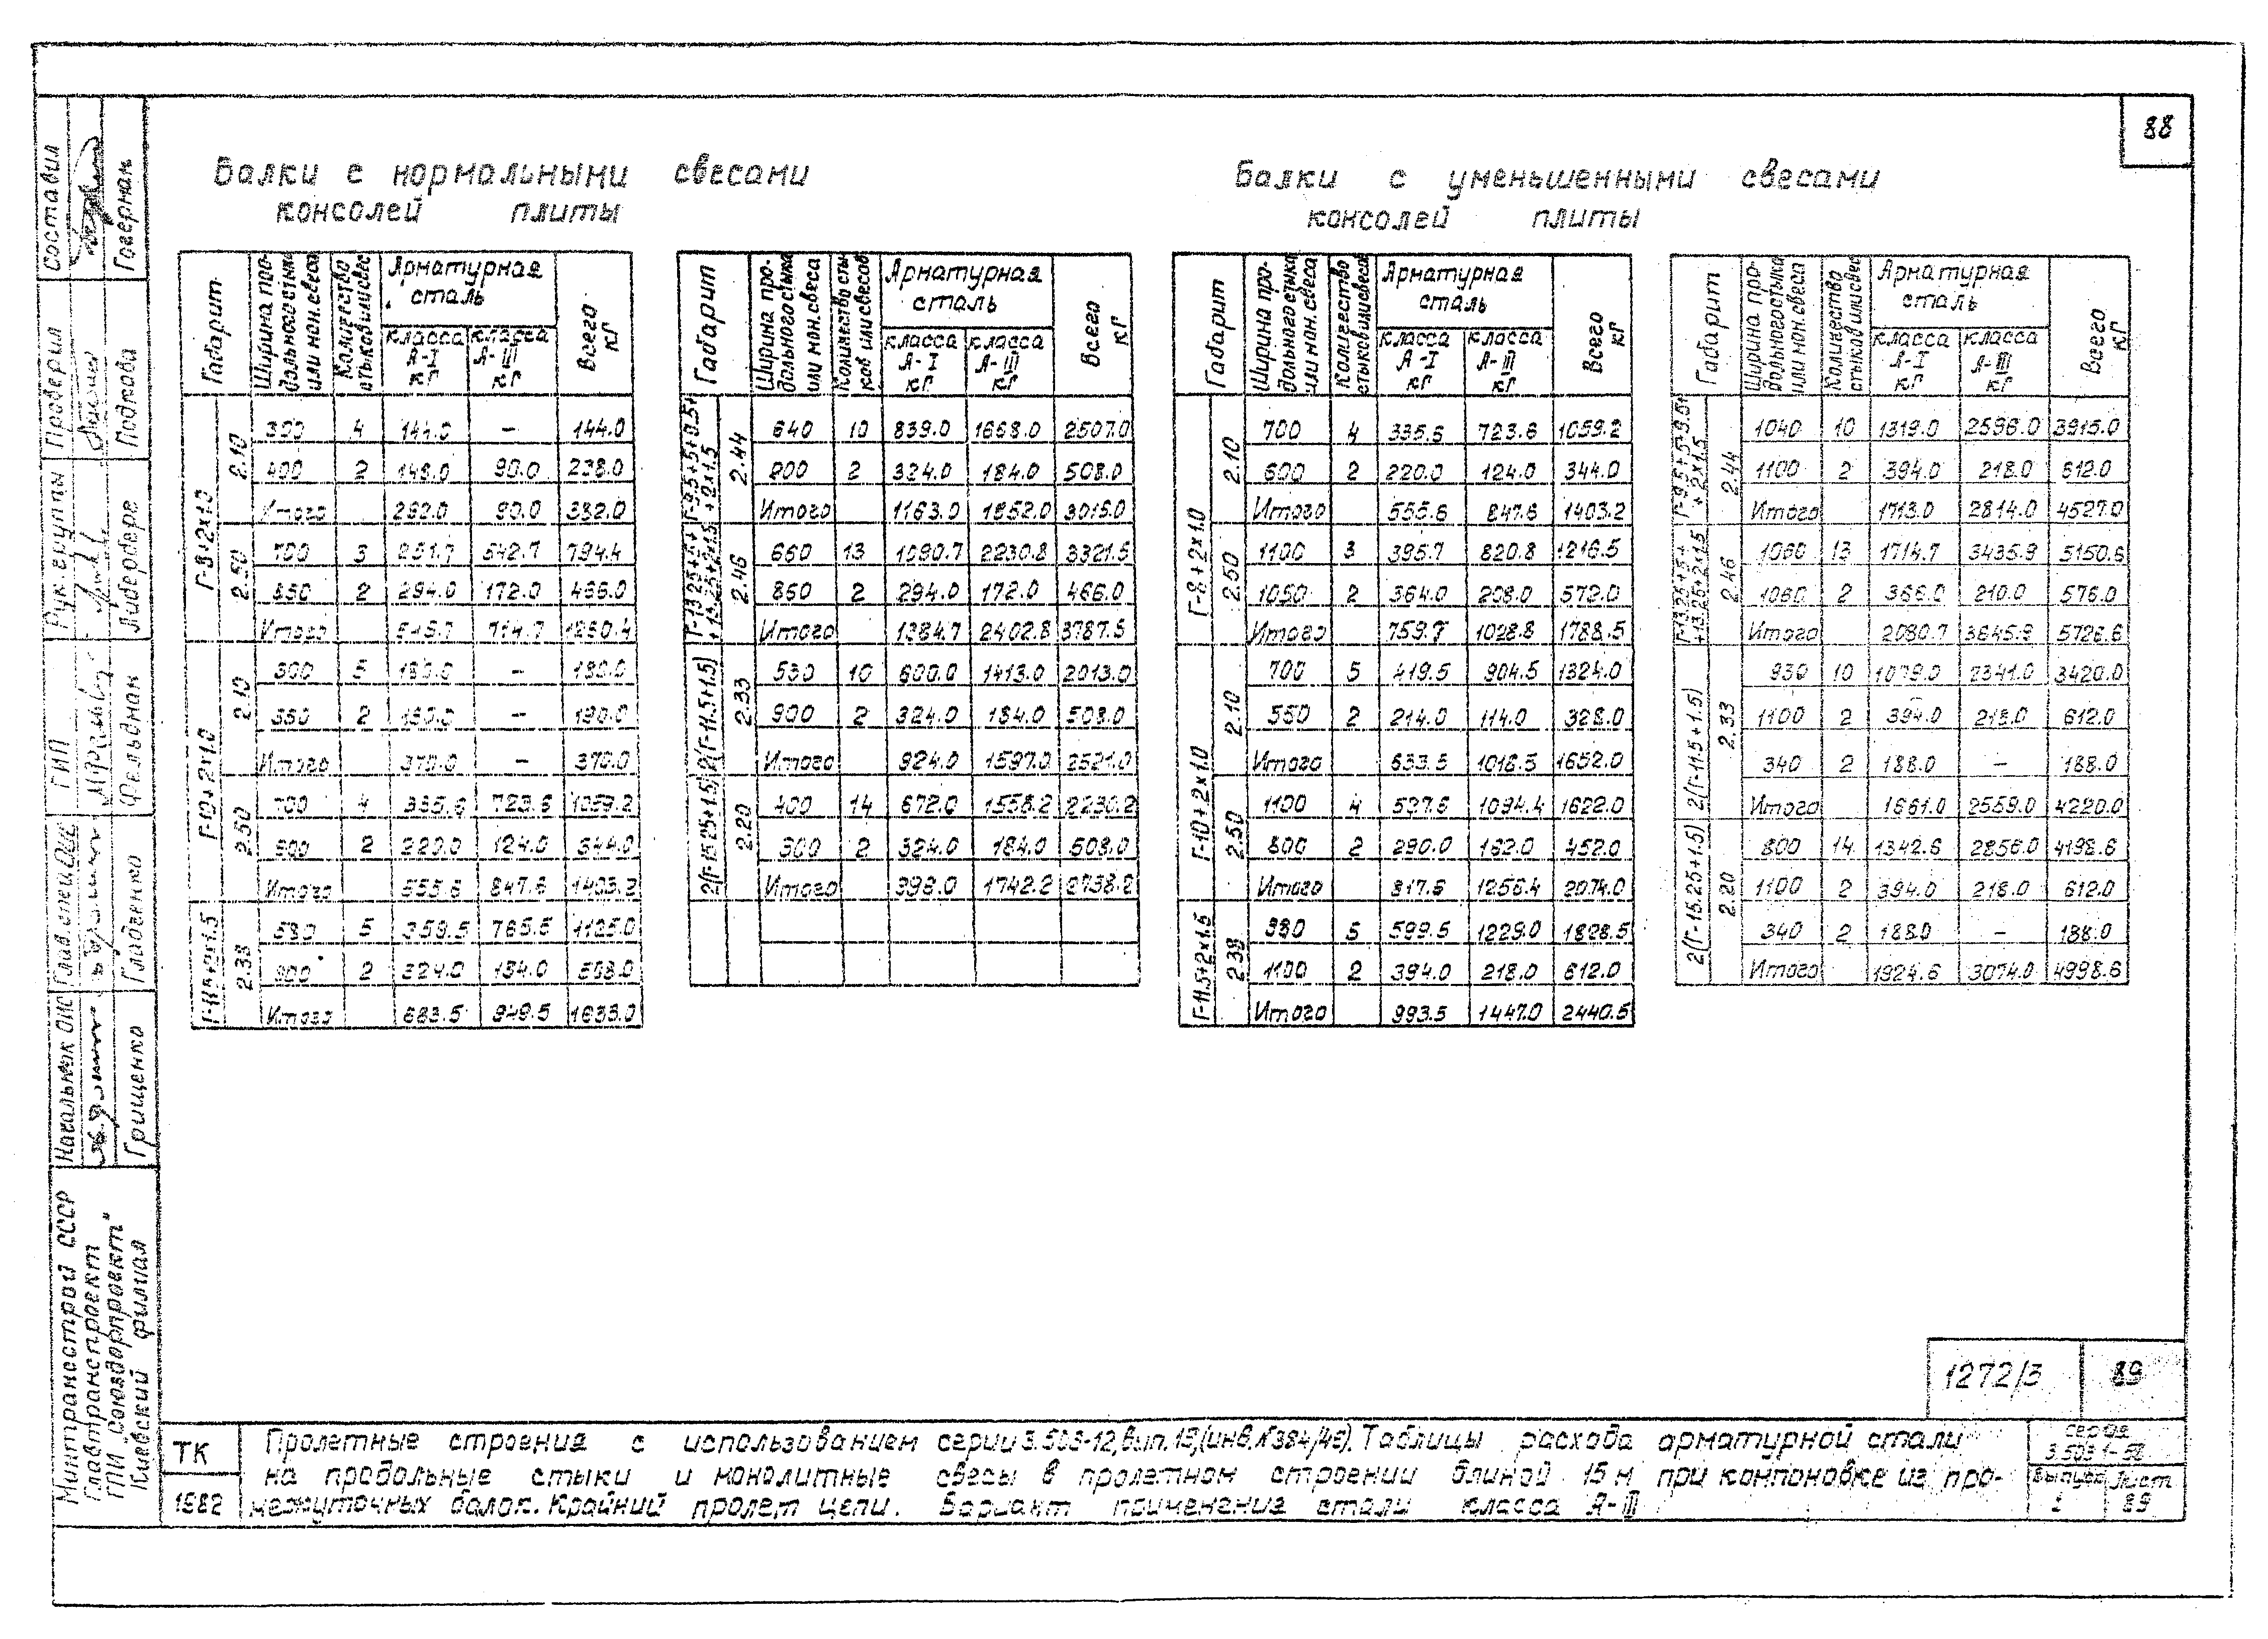 88
Балки с нормальными свесами
консолей плиты
Балки с уменьшенными свесами
консолей плиты
Габарит | Ширина продольного стыка или мон. свеса | Количество стыков или свес | Арматурная сталь | Всего кг
класса А-I кг | класса А-III кг
Г-8+2х1.0
2.10
300 4 144.0 – 144.0
400 2 148.0 90.0 238.0
Итого 292.0 90.0 382.0
2.50
700 3 251.7 542.7 794.4
850 2 294.0 172.0 466.0
Итого 545.7 714.7 1260.4
Г-10+2х1.0
2.10
300 5 180.0 – 180.0
350 2 190.0 – 190.0
Итого 370.0 – 370.0
2.50
700 4 335.6 723.6 1059.2
600 2 220.0 124.0 344.0
Итого 555.6 847.6 1403.2
Г-11.5+2х1.5
2.38
580 5 359.5 765.5 1125.0
900 2 324.0 184.0 508.0
Итого 683.5 949.5 1633.0
Габарит | Ширина продольного стыка или мон. свеса | Количество стыков или свесов | Арматурная сталь | Всего кг
класса А-I кг | класса А-III кг
Г-9.5+5+9.5+ +2х1.5
2.44
640 10 839.0 1668.0 2507.0
900 2 324.0 184.0 508.0
Итого 1163.0 1852.0 3015.0
Г-13.25+5+ +13.25+2х1.5
2.46
660 13 1090.7 2230.8 3321.5
860 2 294.0 172.0 466.0
Итого 1384.7 2402.8 3787.5
2(Г-11.5+1.5)
2.33
530 10 600.0 1413.0 2013.0
900 2 324.0 184.0 508.0
Итого 924.0 1597.0 2521.0
2(Г-15.25+1.5)
2.20
400 14 672.0 1558.2 2230.2
900 2 324.0 184.0 508.0
Итого 996.0 1742.2 2738.2
Габарит | Ширина продольного стыка или мон. свеса | Количество стыков или свесов | Арматурная сталь | Всего кг
класса А-I кг | класса А-III кг
Г-8+2х1.0
2.10
700 4 335.6 723.6 1059.2
600 2 220.0 124.0 344.0
Итого 555.6 847.6 1403.2
2.50
1100 3 395.7 820.8 1216.5
1050 2 364.0 208.0 572.0
Итого 759.7 1028.8 1788.5
Г-10+2х1.0
2.10
700 5 419.5 904.5 1324.0
550 2 214.0 114.0 328.0
Итого 633.5 1018.5 1652.0
2.50
1100 4 527.6 1094.4 1622.0
800 2 290.0 162.0 452.0
Итого 817.6 1256.4 2074.0
Г-11.5+2х1.5
2.38
980 5 599.5 1229.0 1828.5
1100 2 394.0 218.0 612.0
Итого 993.5 1447.0 2440.5
Габарит | Ширина продольного стыка или мон. свеса | Количество стыков или свес | Арматурная сталь | Всего кг
класса А-I кг | класса А-III кг
Г-9.5+5+9.5+ +2х1.5
2.44
1040 10 1319.0 2596.0 3915.0
1100 2 394.0 218.0 612.0
Итого 1713.0 2814.0 4527.0
Г-13.25+5+ +13.25+2х1.5
2.46
1060 13 1714.7 3435.9 5150.6
1060 2 366.0 210.0 576.0
Итого 2080.7 3645.9 5726.6
2(Г-11.5+1.5)
2.33
930 10 1079.0 2341.0 3420.0
1100 2 394.0 218.0 612.0
340 2 188.0 – 188.0
Итого 1661.0 2559.0 4220.0
2(Г-15.25+1.5)
2.20
800 14 1342.6 2856.0 4198.6
1100 2 394.0 218.0 612.0
340 2 188.0 – 188.0
Итого 1924.6 3074.0 4998.6
Составил Гогерман
Проверил Подкова
Рук. группы Лидербере
ГИП Фельдман
Глав. спец. ОИС Гладченко
Начальник ОИС Грищенко
Минтрансстрой СССР
Главтранспроект
ГПИ „Союздорпроект"
Киевский филиал
1272/3 89
ТК
1982
Пролетные строения с использованием серии 3.503-12, вып. 15, (инв. №384/43). Таблицы расхода арматурной стали
на продольные стыки и монолитные свесы в пролетном строении длиной 15 м при компоновке из про-
межуточных балок. Крайний пролет цепи. Вариант применения стали класса А-III
Серия
3.503.1-58
Выпуск Лист
1 89